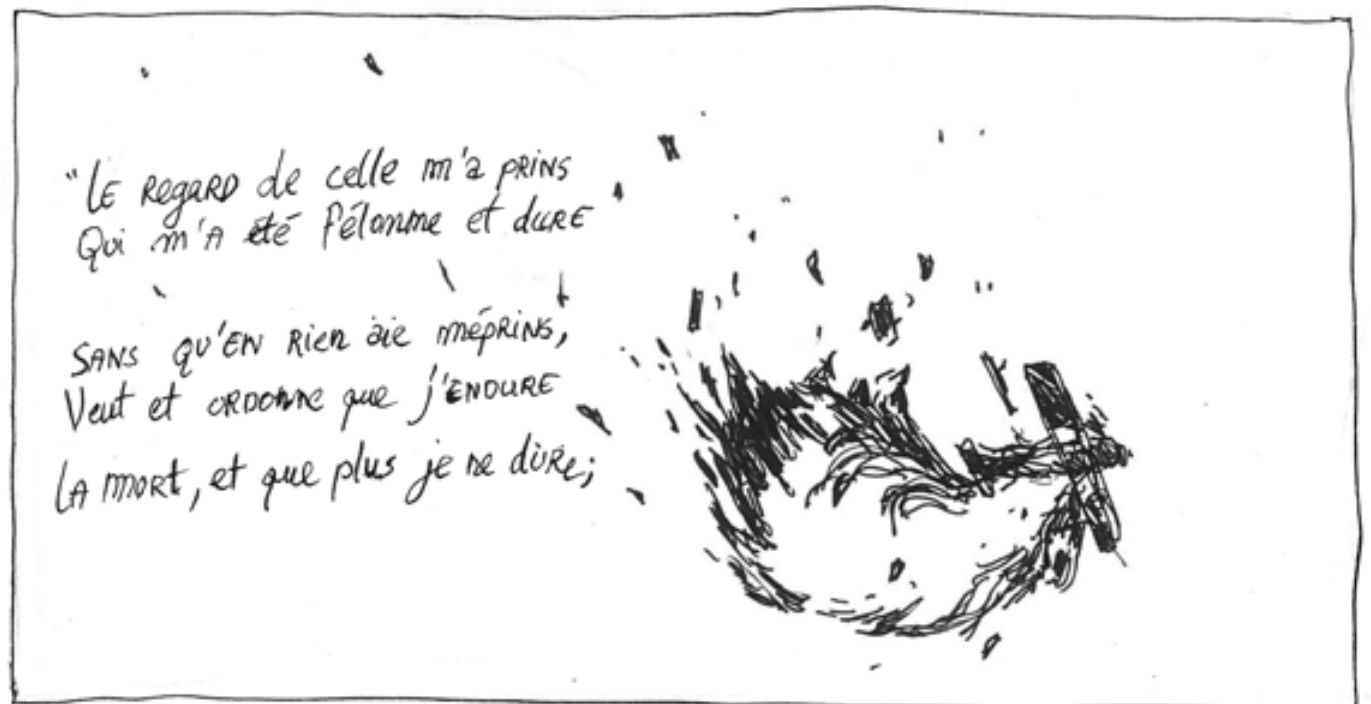 "LE REGARD de celle m'a PRINS
Qui m'A été félonne et dURE
SANS QU'EN RiEn aie méPRiNS,
Veut et ORDONNe que j'ENDURE
LA MORt, et que plus je ne dURe;